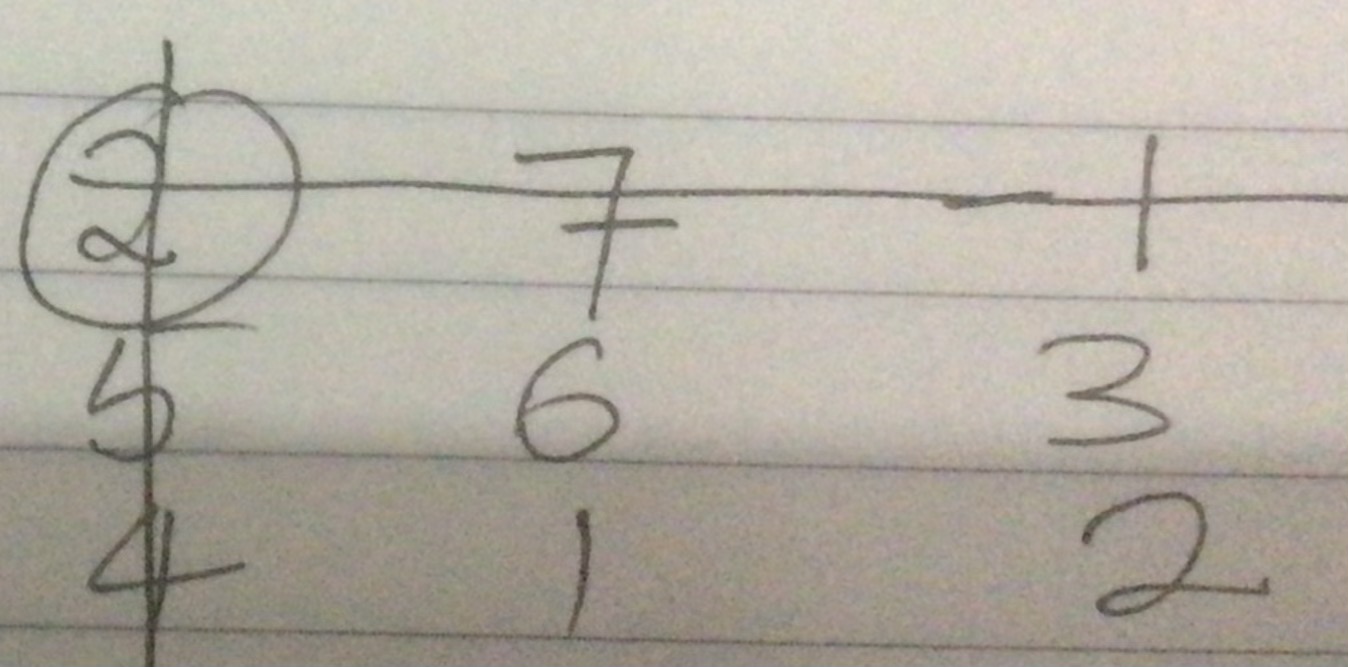 2 7 1
5 6 3
4 1 2